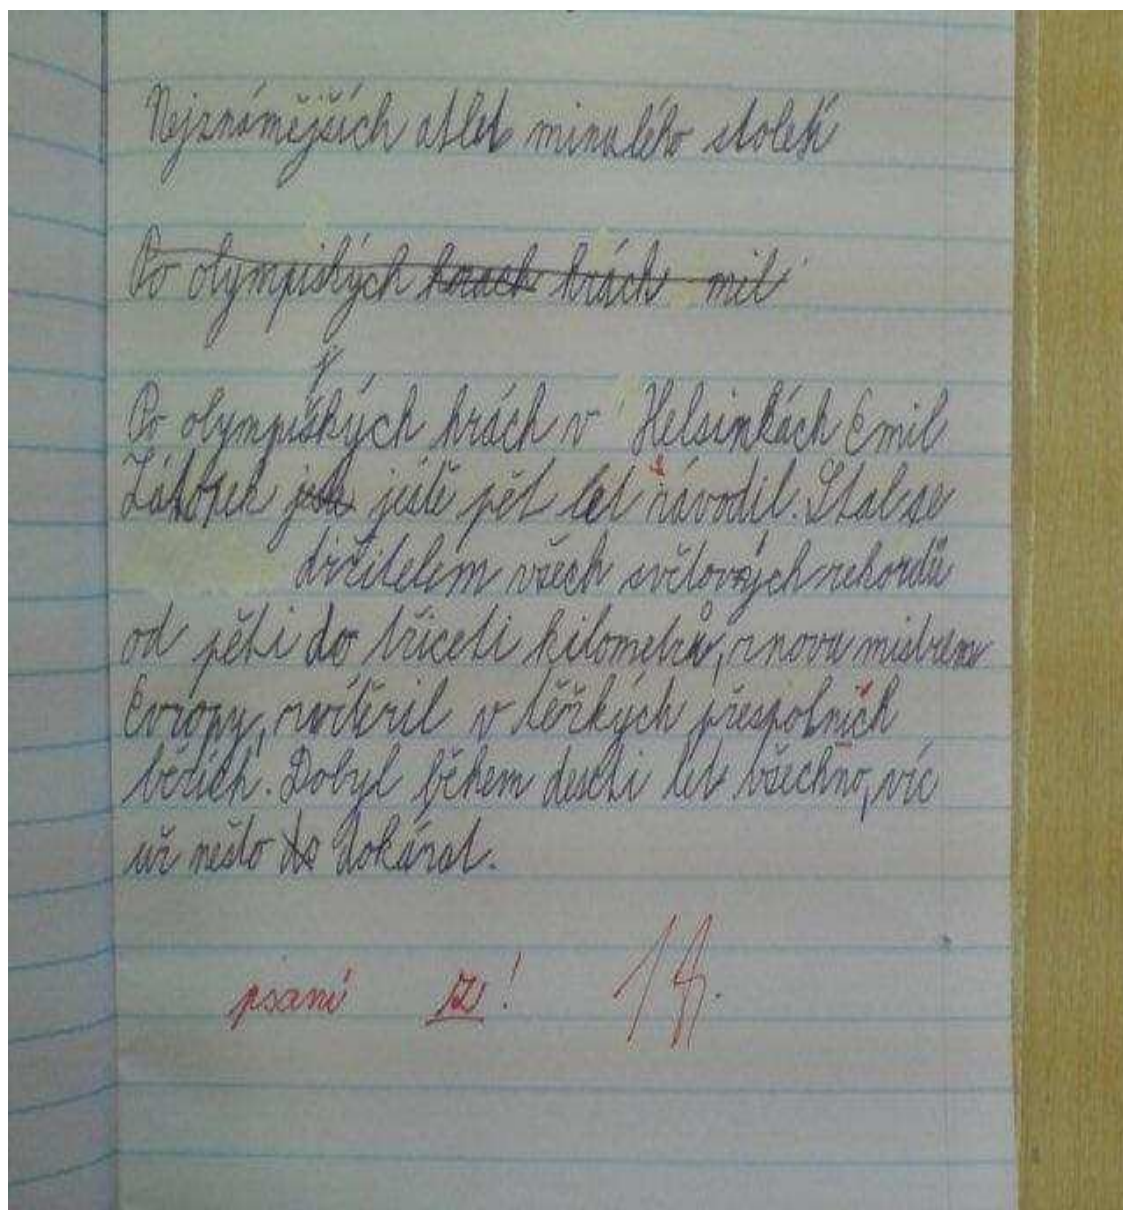 Nejznámějších atlet minulého století
Po olympiských hrách hrách mil
Po olympiských hrách v Helsinkách Emil
Zátopek ještě pět let závodil. Stal se
držitelem všech světových rekordů
od pěti do třiceti kilometrů, znovu mistrem
Evropy, zvítězil v těžkých přespolních
bězích. Dobyl během deseti let všechno, víc
už nešlo do dokázat.
psaní z!